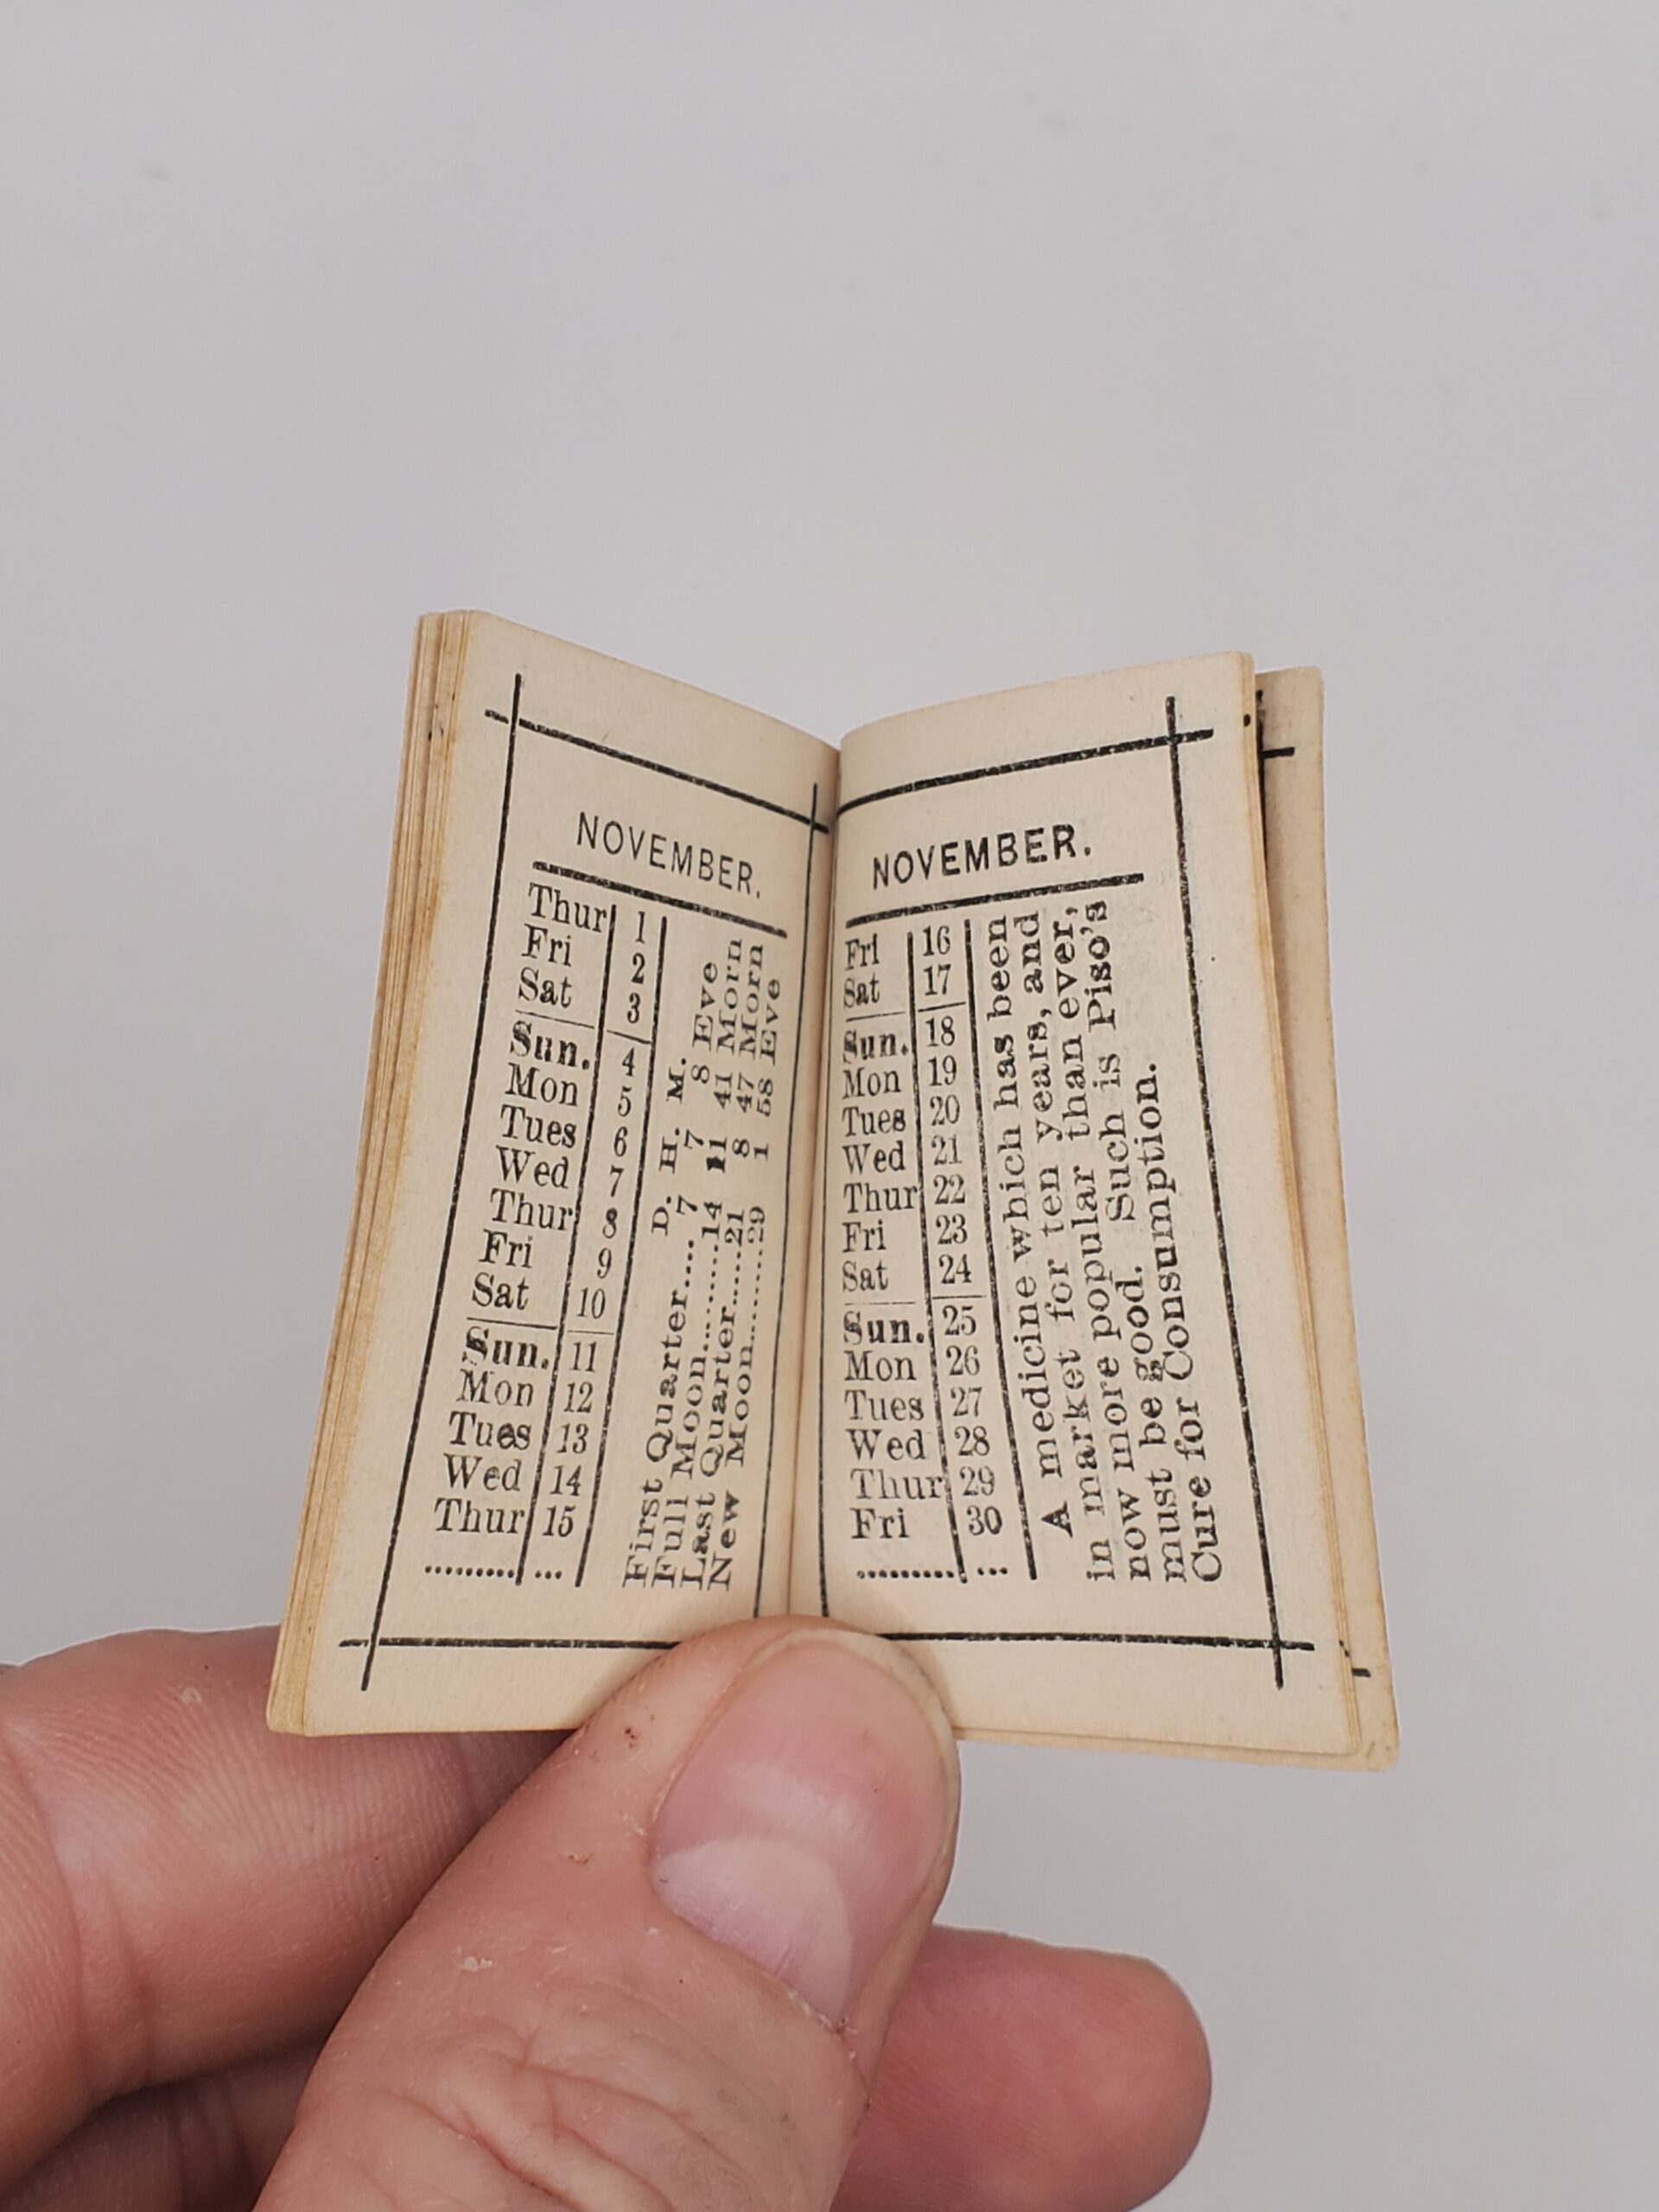 NOVEMBER.
Thur 1
Fri 2
Sat 3
Sun. 4
Mon 5
Tues 6
Wed 7
Thur 8
Fri 9
Sat 10
Sun. 11
Mon 12
Tues 13
Wed 14
Thur 15
......... ...
D. H. M.
First Quarter.... 7 7 8 Eve
Full Moon.........14 11 41 Morn
Last Quarter.....21 8 47 Morn
New Moon.........29 1 58 Eve
NOVEMBER.
Fri 16
Sat 17
Sun. 18
Mon 19
Tues 20
Wed 21
Thur 22
Fri 23
Sat 24
Sun. 25
Mon 26
Tues 27
Wed 28
Thur 29
Fri 30
.......... ...
A medicine which has been
in market for ten years, and
now more popular than ever,
must be good. Such is Piso's
Cure for Consumption.